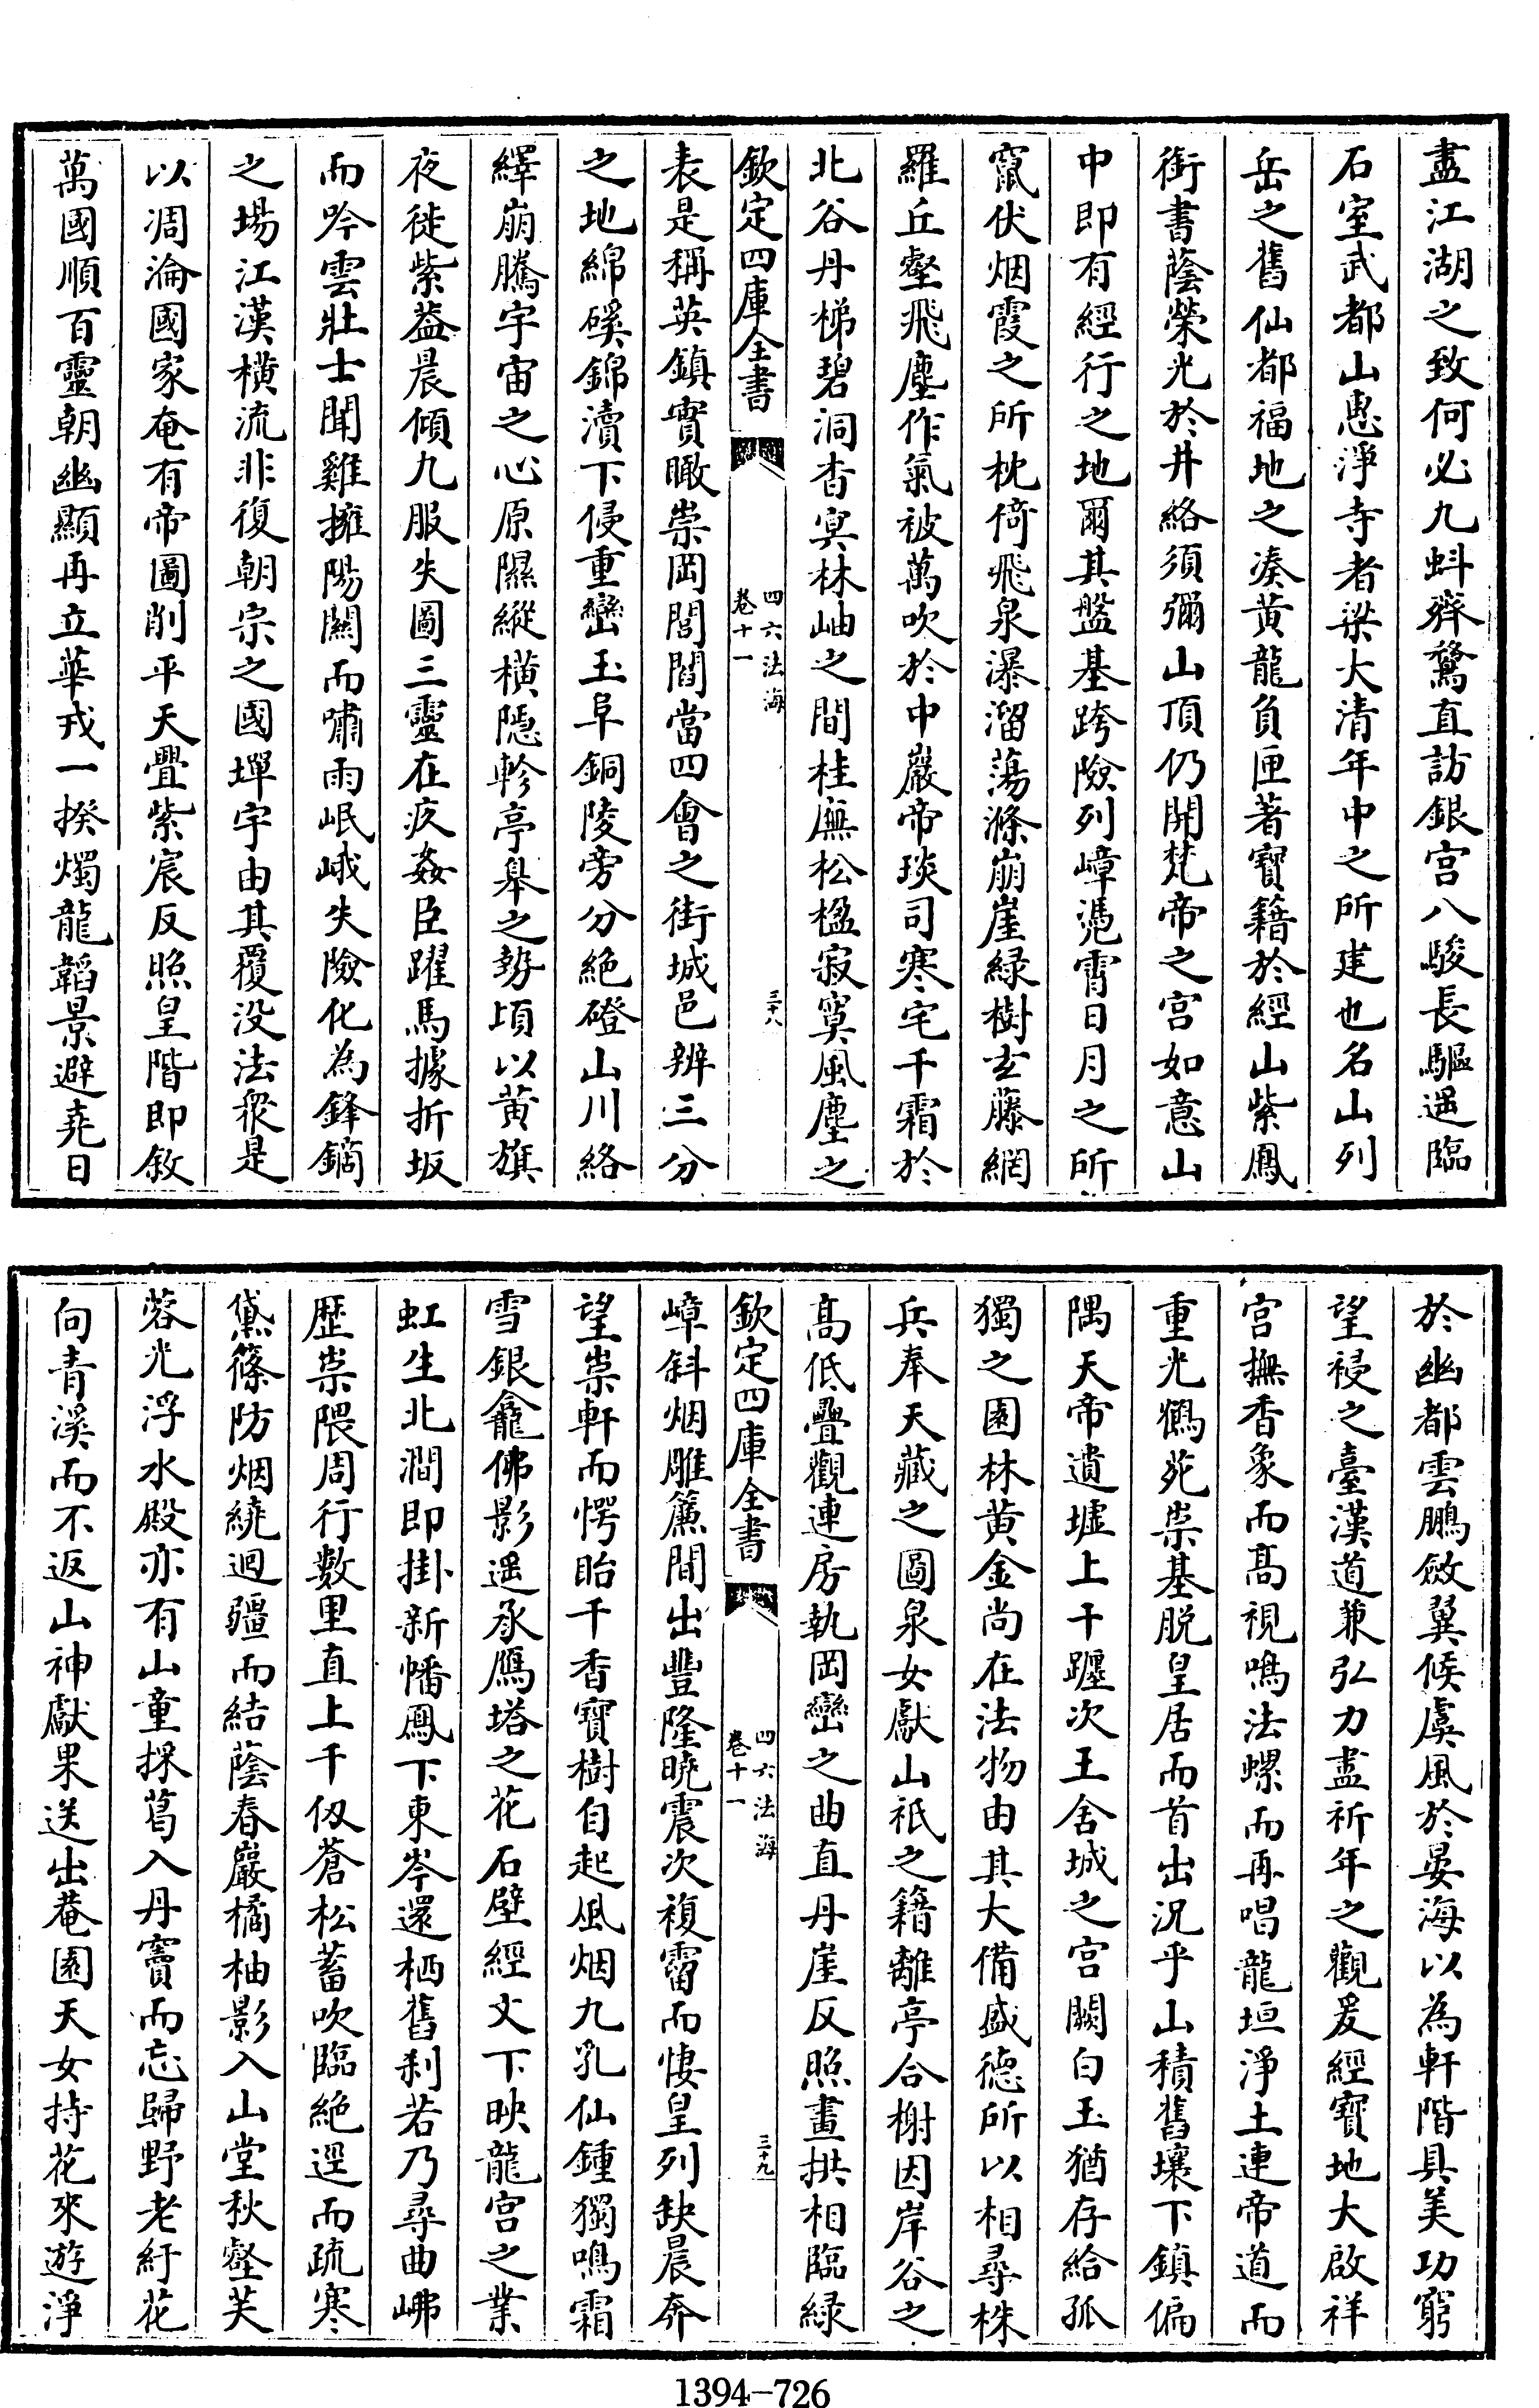 盡江湖之致何必九蚪齊騖直訪銀宫八駿長驅遥臨
石室武都山惠淨寺者梁大清年中之所建也名山列
岳之舊仙都福地之湊黄龍負匣著寳籍於經山紫鳳
銜書蔭榮光於井絡須彌山頂仍開梵帝之宫如意山
中即有經行之地爾其盤基跨險列嶂憑霄日月之所
竄伏烟霞之所枕倚飛泉瀑溜蕩滌崩崖緑樹玄藤網
羅丘壑飛塵作氣被萬吹於中巖帝琰司寒宅千霜於
北谷丹梯碧洞杳冥林岫之間桂廡松楹寂寞風塵之
欽定四庫全書
四六法海
卷十一
三十八
表是稱英鎮實瞰崇岡閭閻當四會之街城邑辨三分
之地綿磎錦瀆下侵重巒玉阜銅陵旁分絶磴山川絡
繹崩騰宇宙之心原隰縱横隱軫亭皋之勢頃以黄旗
夜徙紫葢晨傾九服失圖三靈在疚姦臣躍馬據折坂
而吟雲壯士聞雞擁陽關而嘯雨岷峨失險化為鋒鏑
之場江漢横流非復朝宗之國墠宇由其覆没法衆是
以凋淪國家奄有帝圖削平天疊紫宸反照皇階即敘
萬國順百靈朝幽顯再立華戎一揆燭龍韜景避堯日
於幽都雲鵬斂翼候虞風於晏海以為軒階具美功窮
望祲之臺漢道兼弘力盡祈年之觀爰經寳地大啟祥
宫撫香象而髙視鳴法螺而再唱龍垣淨土連帝道而
重光鶴苑崇基脱皇居而首出況乎山積舊壤下鎮偏
隅天帝遺墟上干躔次王舍城之宫闕白玉猶存給孤
獨之園林黄金尚在法物由其大備盛德所以相尋株
兵奉天藏之圖泉女獻山祇之籍離亭合榭因岸谷之
髙低疊觀連房執岡巒之曲直丹崖反照畫拱相臨緑
欽定四庫全書
四六法海
卷十一
三十九
嶂斜烟雕簷間出豐隆曉震次複霤而悽皇列缺晨奔
望崇軒而愕眙千香寳樹自起風烟九乳仙鍾獨鳴霜
雪銀龕佛影遥承鴈塔之花石壁經文下映龍宫之業
虹生北澗即掛新幡鳳下東岑還栖舊刹若乃尋曲岪
歴崇隈周行數里直上千仭蒼松蓄吹臨絶逕而疏寒
黛篠防烟繞迴疆而結蔭春巖橘柚影入山堂秋壑芙
蓉光浮水殿亦有山童採葛入丹竇而忘歸野老紆花
向青溪而不返山神獻果送出菴園天女持花來遊淨
1394-726